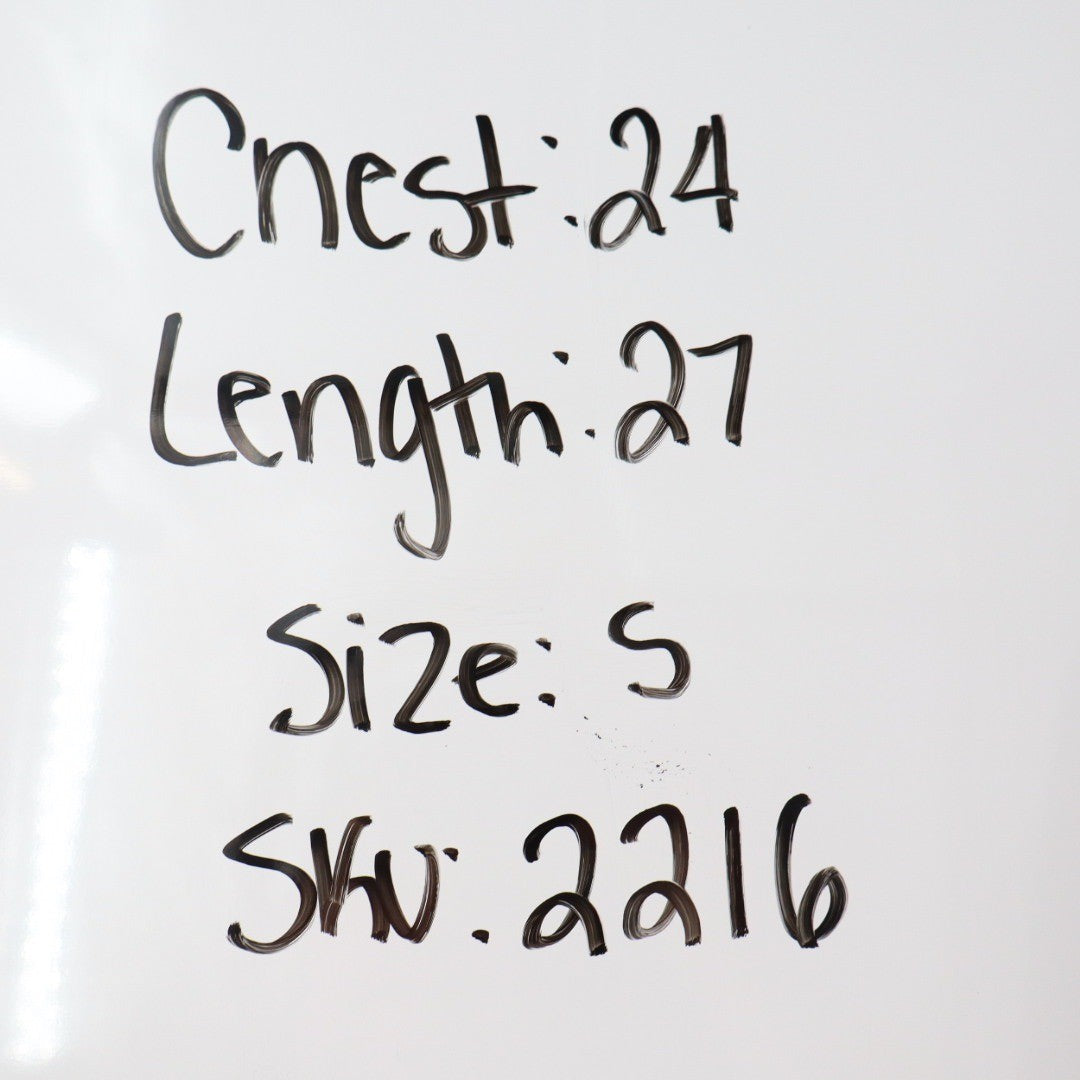 Chest: 24
Length: 27
Size: S
SKU: 2216